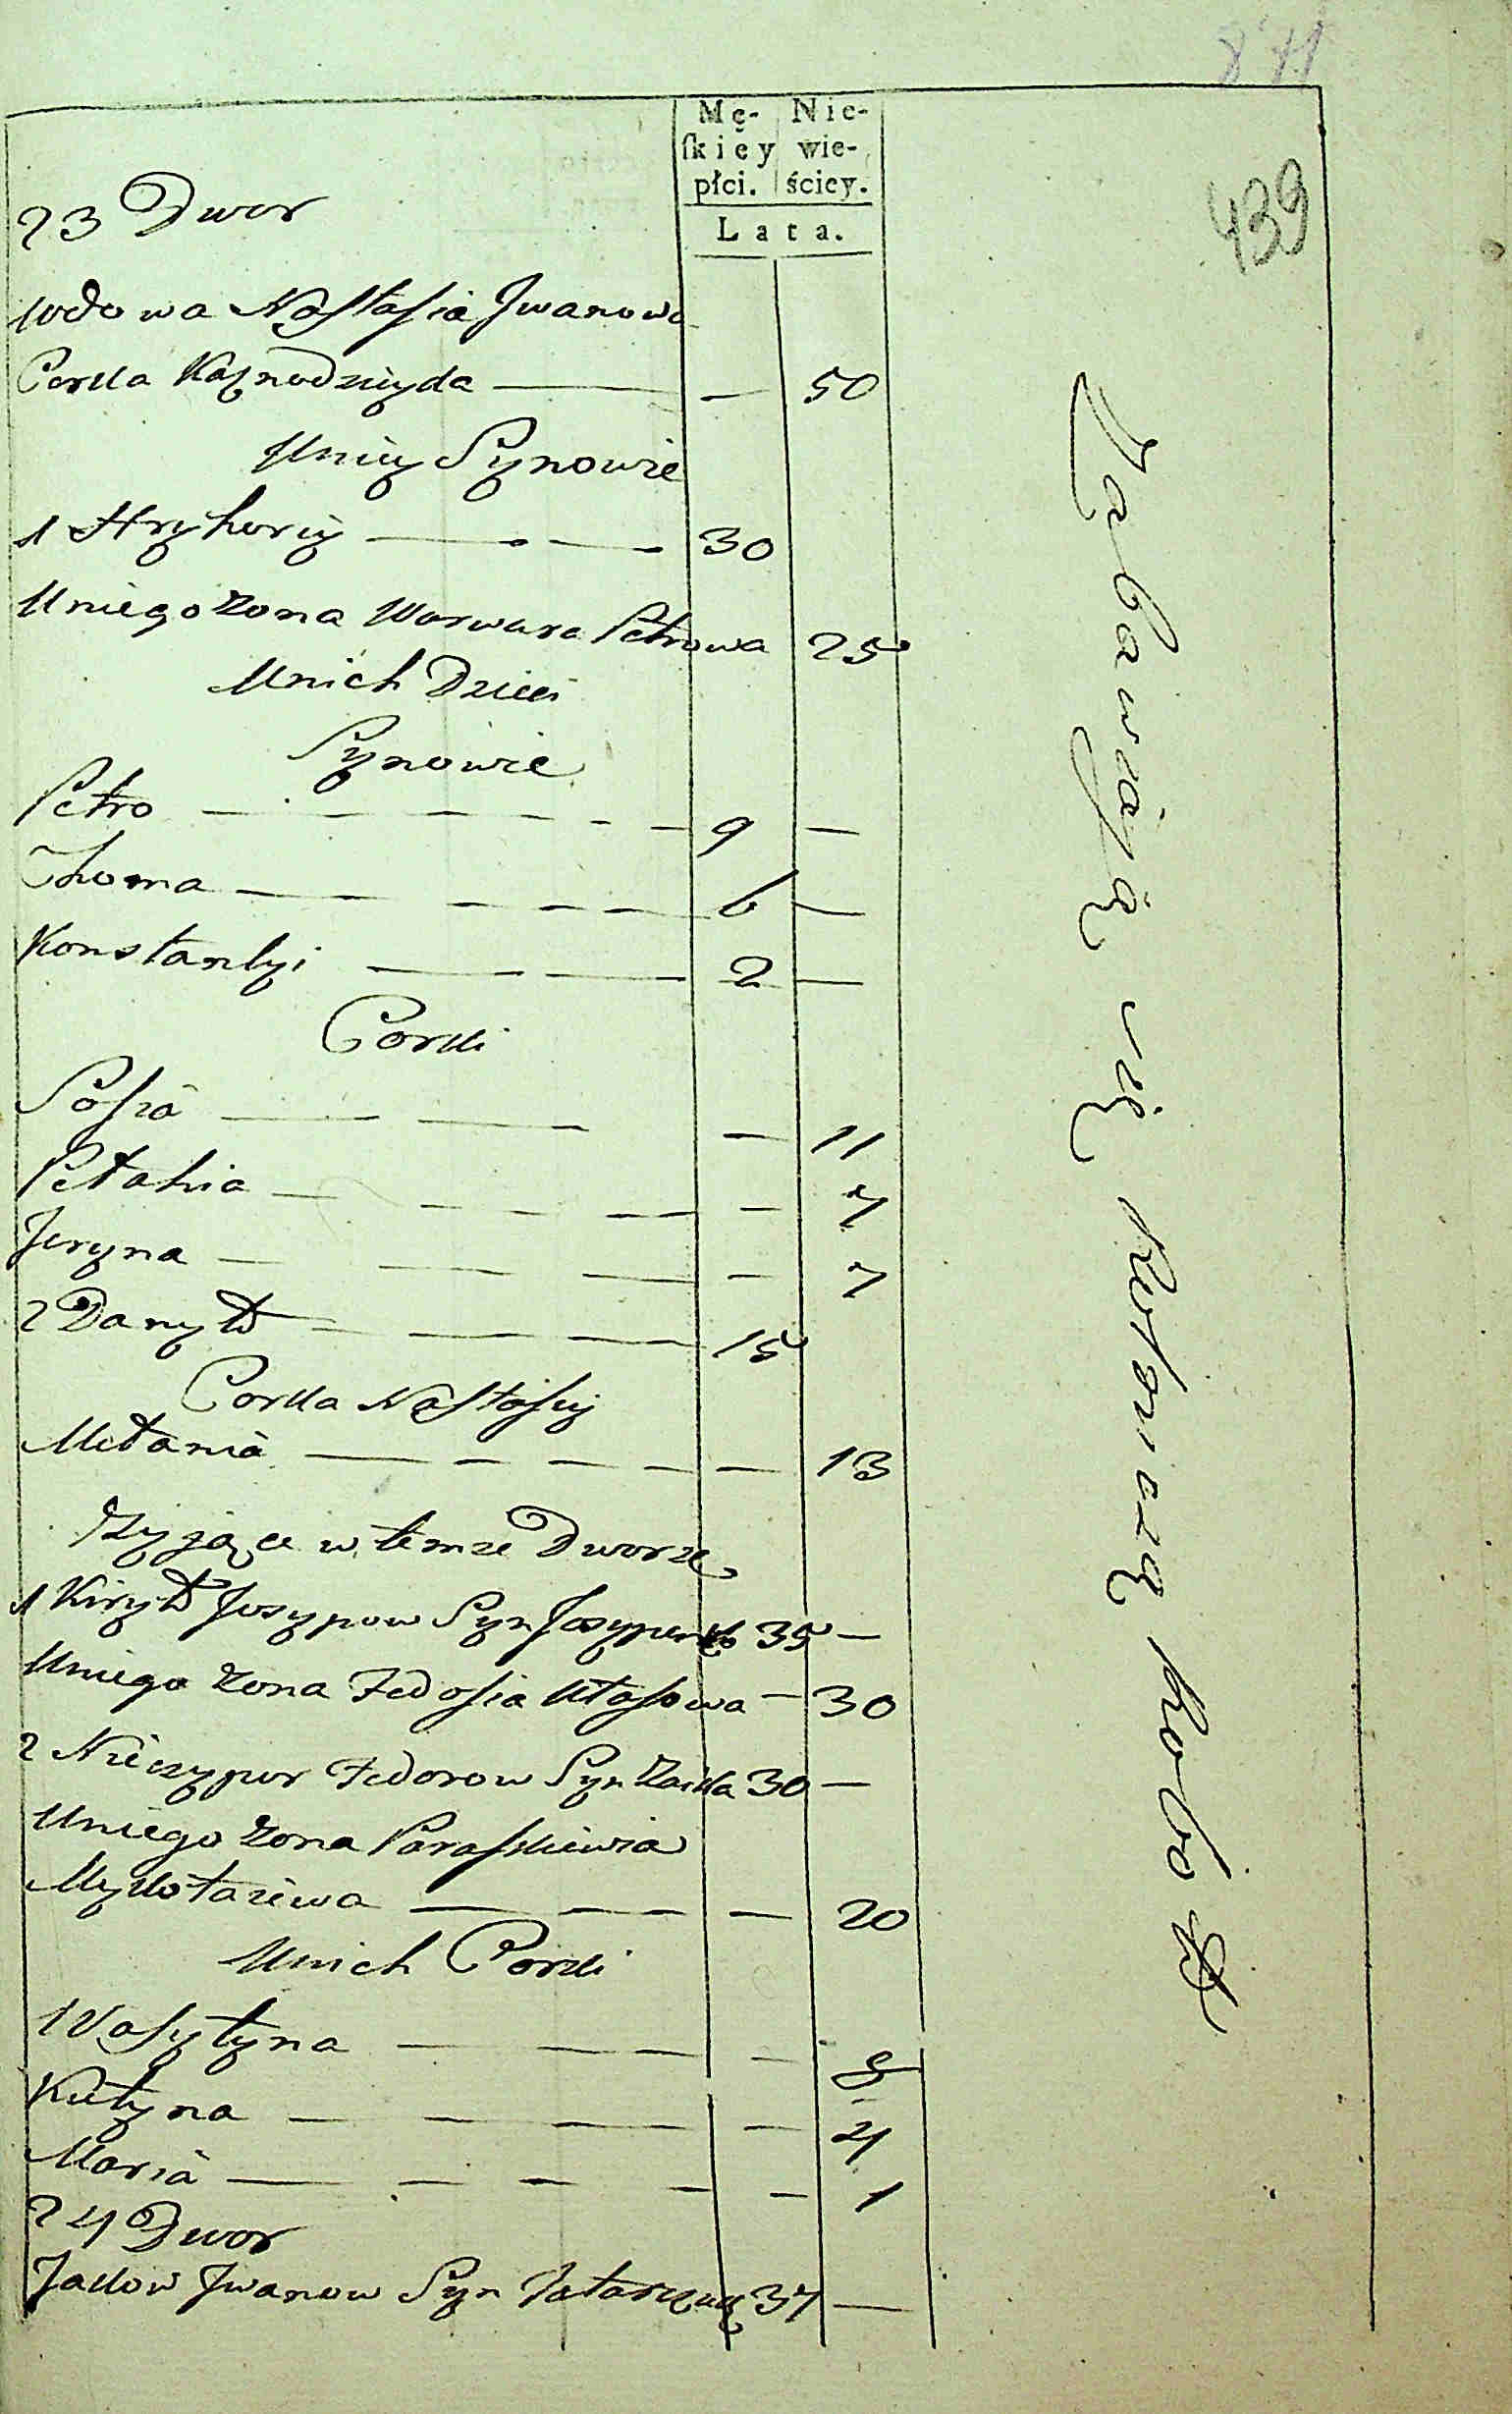 871
439
Mę-skiey płci. Niewieściey.
Lata.
23 Dwor
Wdowa Nastasia Jwanowa
Corka Kaznodzieyda — — 50
Uniey Synowie
1 Hryhoriy — — 30
Uniego Zona Warwara Petrowa 25
Unich Dzieci
Synowie
Petro — — 9 —
Thoma — — 6 —
Konstantyi — — 2 —
Corki
Sosia — — — 11
Pełahia — — — 7
Jeryna — — — 7
2 Danyło — — 15
Corka Nastasiy
Mełania — — — 13
Zyjące w temze Dworze
1 Kiryło Josypow Syn Josypenko 35 —
Uniego Zona Fedosia Własowa — 30
2 Nieczypor Fedorow Syn Zaika 30 —
Uniego Zona Paraskiewia
Mykołaiewa — — — 20
Unich Corki
Wasyłyna — — — 8
Kiłyna — — — 4
Maria — — — 1
24 Dwor
Jakow Jwanow Syn Tatarczuk 37 —
Zabawiaią się Rolniczą robotą